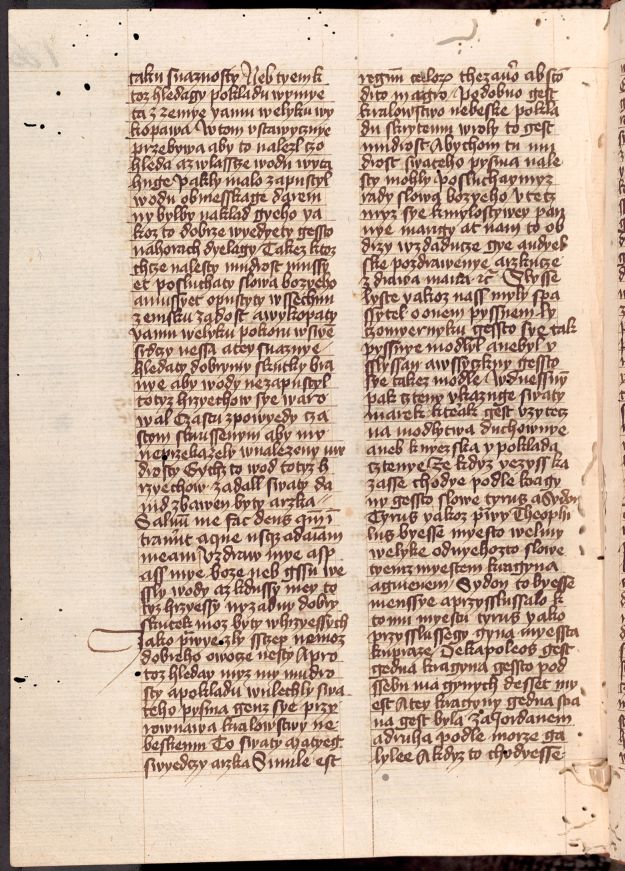 taku snaznosty Neb tyemk
toz hledagy pokladu wymye
ta z zemye yamu welyku wy
kopawa Atom ustawycznye
przebywa aby to nalezl czo
hleda az wlassze wodu wytá
hnge Pakly malo zapustyl
wodu obmesskage darem
ny bylby naklad gyeho ya
koz to dobrze wyedyety gessto
nahorach dyelagy Takez ktoz
chcze nalesty mudrost mussy
et posluchaty slowa bozyeho
amussyet opustyty wssechnu
zemsku zadost awykopaty
yamu welyku pokoru wswe
srdczy nessa atey snaznye
hledaty dobrymy skutky bra
nye aby wody nezapustyl
totyz hrzyechow sye waro
wal Czastu zpowyedy cza
stym skrussenym aby mu
neprzekazely wnalezeny mu
drosty Gychzto wod totyz h
rzyechow zadall swaty da
uid zbawen byty arzka
Saluum me fac deus qm̄ i
trauit aque usqz ad aīam
meam Uzdraw mye asp
ass mye boze neb gssu we
ssly wody az kdussy mey to
tyz hrzyessy nyzadny dobry
skutek moz byty whrzyessych
Iako prwe zly sstep nemoz
dobreho owocze nesty Apro
toz hleday myz my mudro
sty apokladu wulechly swa
teho pysma genz sye przy
rownawa kralowstwy ne
beskemu To swaty Matyeg
swyedczy arzka Simile est
regnum celoro thezauro absco
dito in agro Podobno gest
kralowstwo nebeske pokla
du skrytemu wroly to gest
mudrost Abychom tu mu
drost swateho pysma nale
sty mohly posluchaymyz
rady slowa bozyeho utecz
myz sye kmylostywey pan
nye maugy at nam to ob
drzy wzdaducze gye andyel
ske pozdrawenye arzkucze
zdrawa maria etc Slysse
lyste yakoz nass myly spa
sytel o onem pyssnem ly
czomyernyku gessto sye tak
pyssnye modlyl anebyl u
slyssan awssyczkny gessto
sye takez modle Wdnessnym
pak cztenye ukazuge swaty
marek kteak gest uzytecz
na modlytwa duchownye
aneb krzeska y poklada
cztenye ze kdyz yezyss ka
zasse chodye podle kragy
ny gessto slowe tyrus aSydon
Tyrus yakoz prwy Theophi
lus byesse myesto welmy
welyke odnyehozto slowe
tyemz myestem kragyna
agmenem Sydon to byesse
mensye aprzysslussalo k
tomu myestu tyrus yako
przysslussegy gyna myesta
kupraze Dekapoleos gest
gedna kragyna gessto pod
ssebu ma gynych desset my
est Atey kragyny gedna stra
na gest byla zaJordanem
adruha podle morze ga
lylee Akdyz to chodyesse